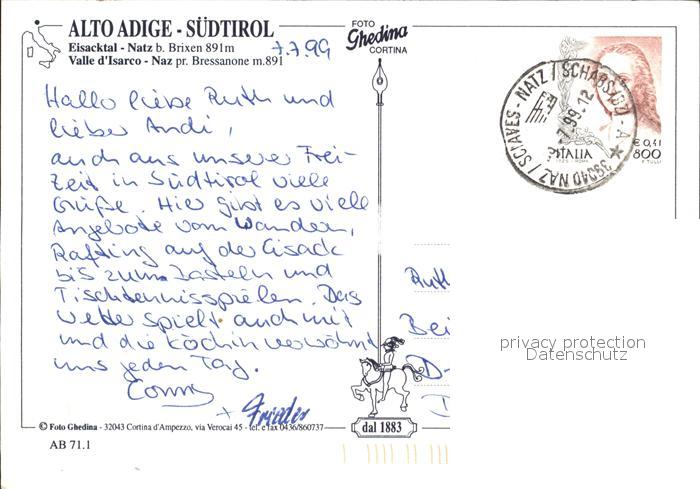 ALTO ADIGE - SÜDTIROL
Eisacktal - Natz b. Brixen 891m
Valle d'Isarco - Naz pr. Bressanone m.891
7.7.99
FOTO
Ghedina
CORTINA
Hallo liebe Ruth und
lieber Andi,
auch aus unserer Frei-
zeit in Südtirol viele
Grüße. Hier gibt es viele
Angebote vom Wandern,
Rafting auf der Eisack
bis zum Basteln und
Tischtennisspielen. Das
Wetter spielt auch mit
und die Köchin verwöhnt
uns jeden Tag.
Conny
+ Frieder
39040 NAZ / SCIAVES - NATZ / SCHABS (BZ) - A
7.99.12
ITALIA
€ 0,41
800
Ruth
Bei
D-
privacy protection
Datenschutz
dal 1883
© Foto Ghedina - 32043 Cortina d'Ampezzo, via Verocai 45 - tel. e fax 0436/860737
AB 71.1